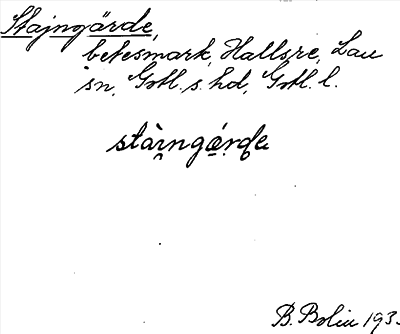 Stajngärde,
betesmark, Hallsre, Lau
sn, Gotl. s. hd, Gotl. l.
stài̯ngǽrde
B. Bolin 193.